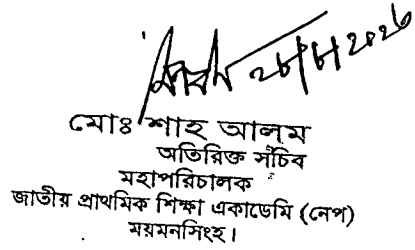 মোঃ শাহ আলম
অতিরিক্ত সচিব
মহাপরিচালক
জাতীয় প্রাথমিক শিক্ষা একাডেমি (নেপ)
ময়মনসিংহ।